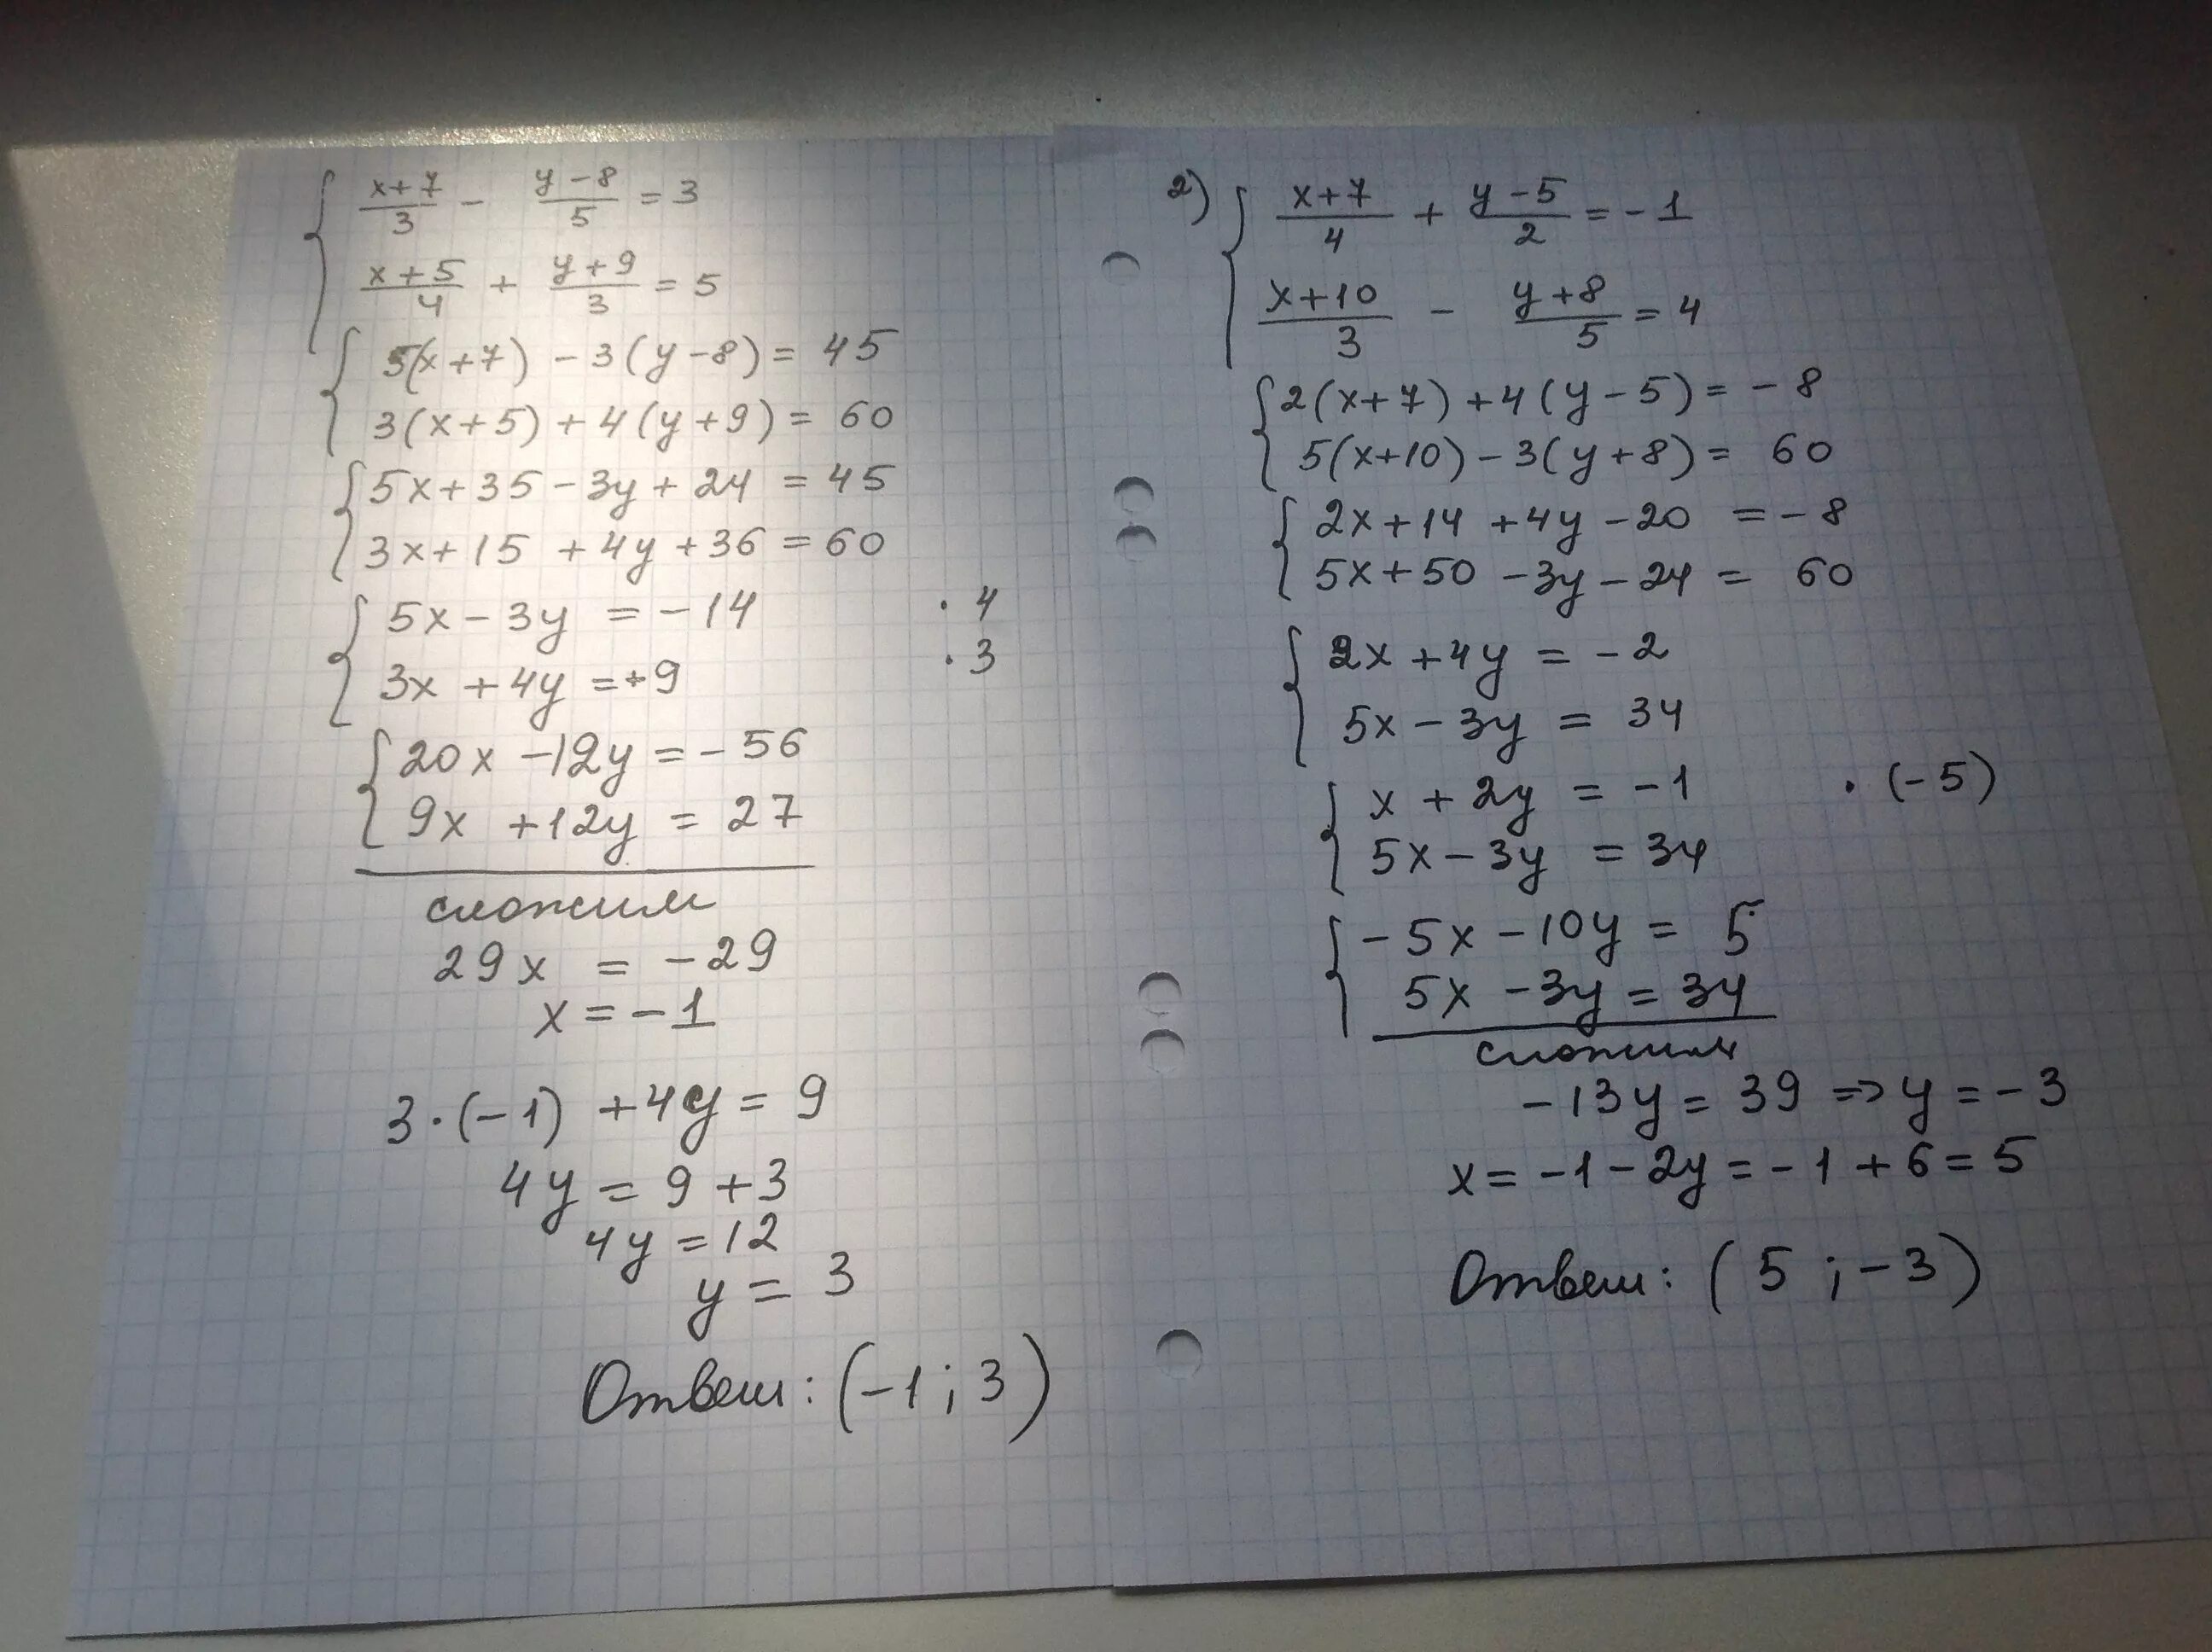 { (x+7)/3 - (y-8)/5 = 3
(x+5)/4 + (y+9)/3 = 5
{ 5(x+7) - 3(y-8) = 45
3(x+5) + 4(y+9) = 60
{ 5x+35-3y+24 = 45
3x+15+4y+36 = 60
{ 5x-3y = -14 · 4
3x+4y = +9 · 3
{ 20x-12y = -56
9x+12y = 27
сложим
29x = -29
x = -1
3·(-1) + 4y = 9
4y = 9+3
4y = 12
y = 3
Ответ: (-1; 3)
2) { (x+7)/4 + (y-5)/2 = -1
(x+10)/3 - (y+8)/5 = 4
{ 2(x+7) + 4(y-5) = -8
5(x+10) - 3(y+8) = 60
{ 2x+14+4y-20 = -8
5x+50-3y-24 = 60
{ 2x+4y = -2
5x-3y = 34
{ x+2y = -1 · (-5)
5x-3y = 34
{ -5x-10y = 5
5x-3y = 34
сложим
-13y = 39 => y = -3
x = -1-2y = -1+6 = 5
Ответ: (5; -3)